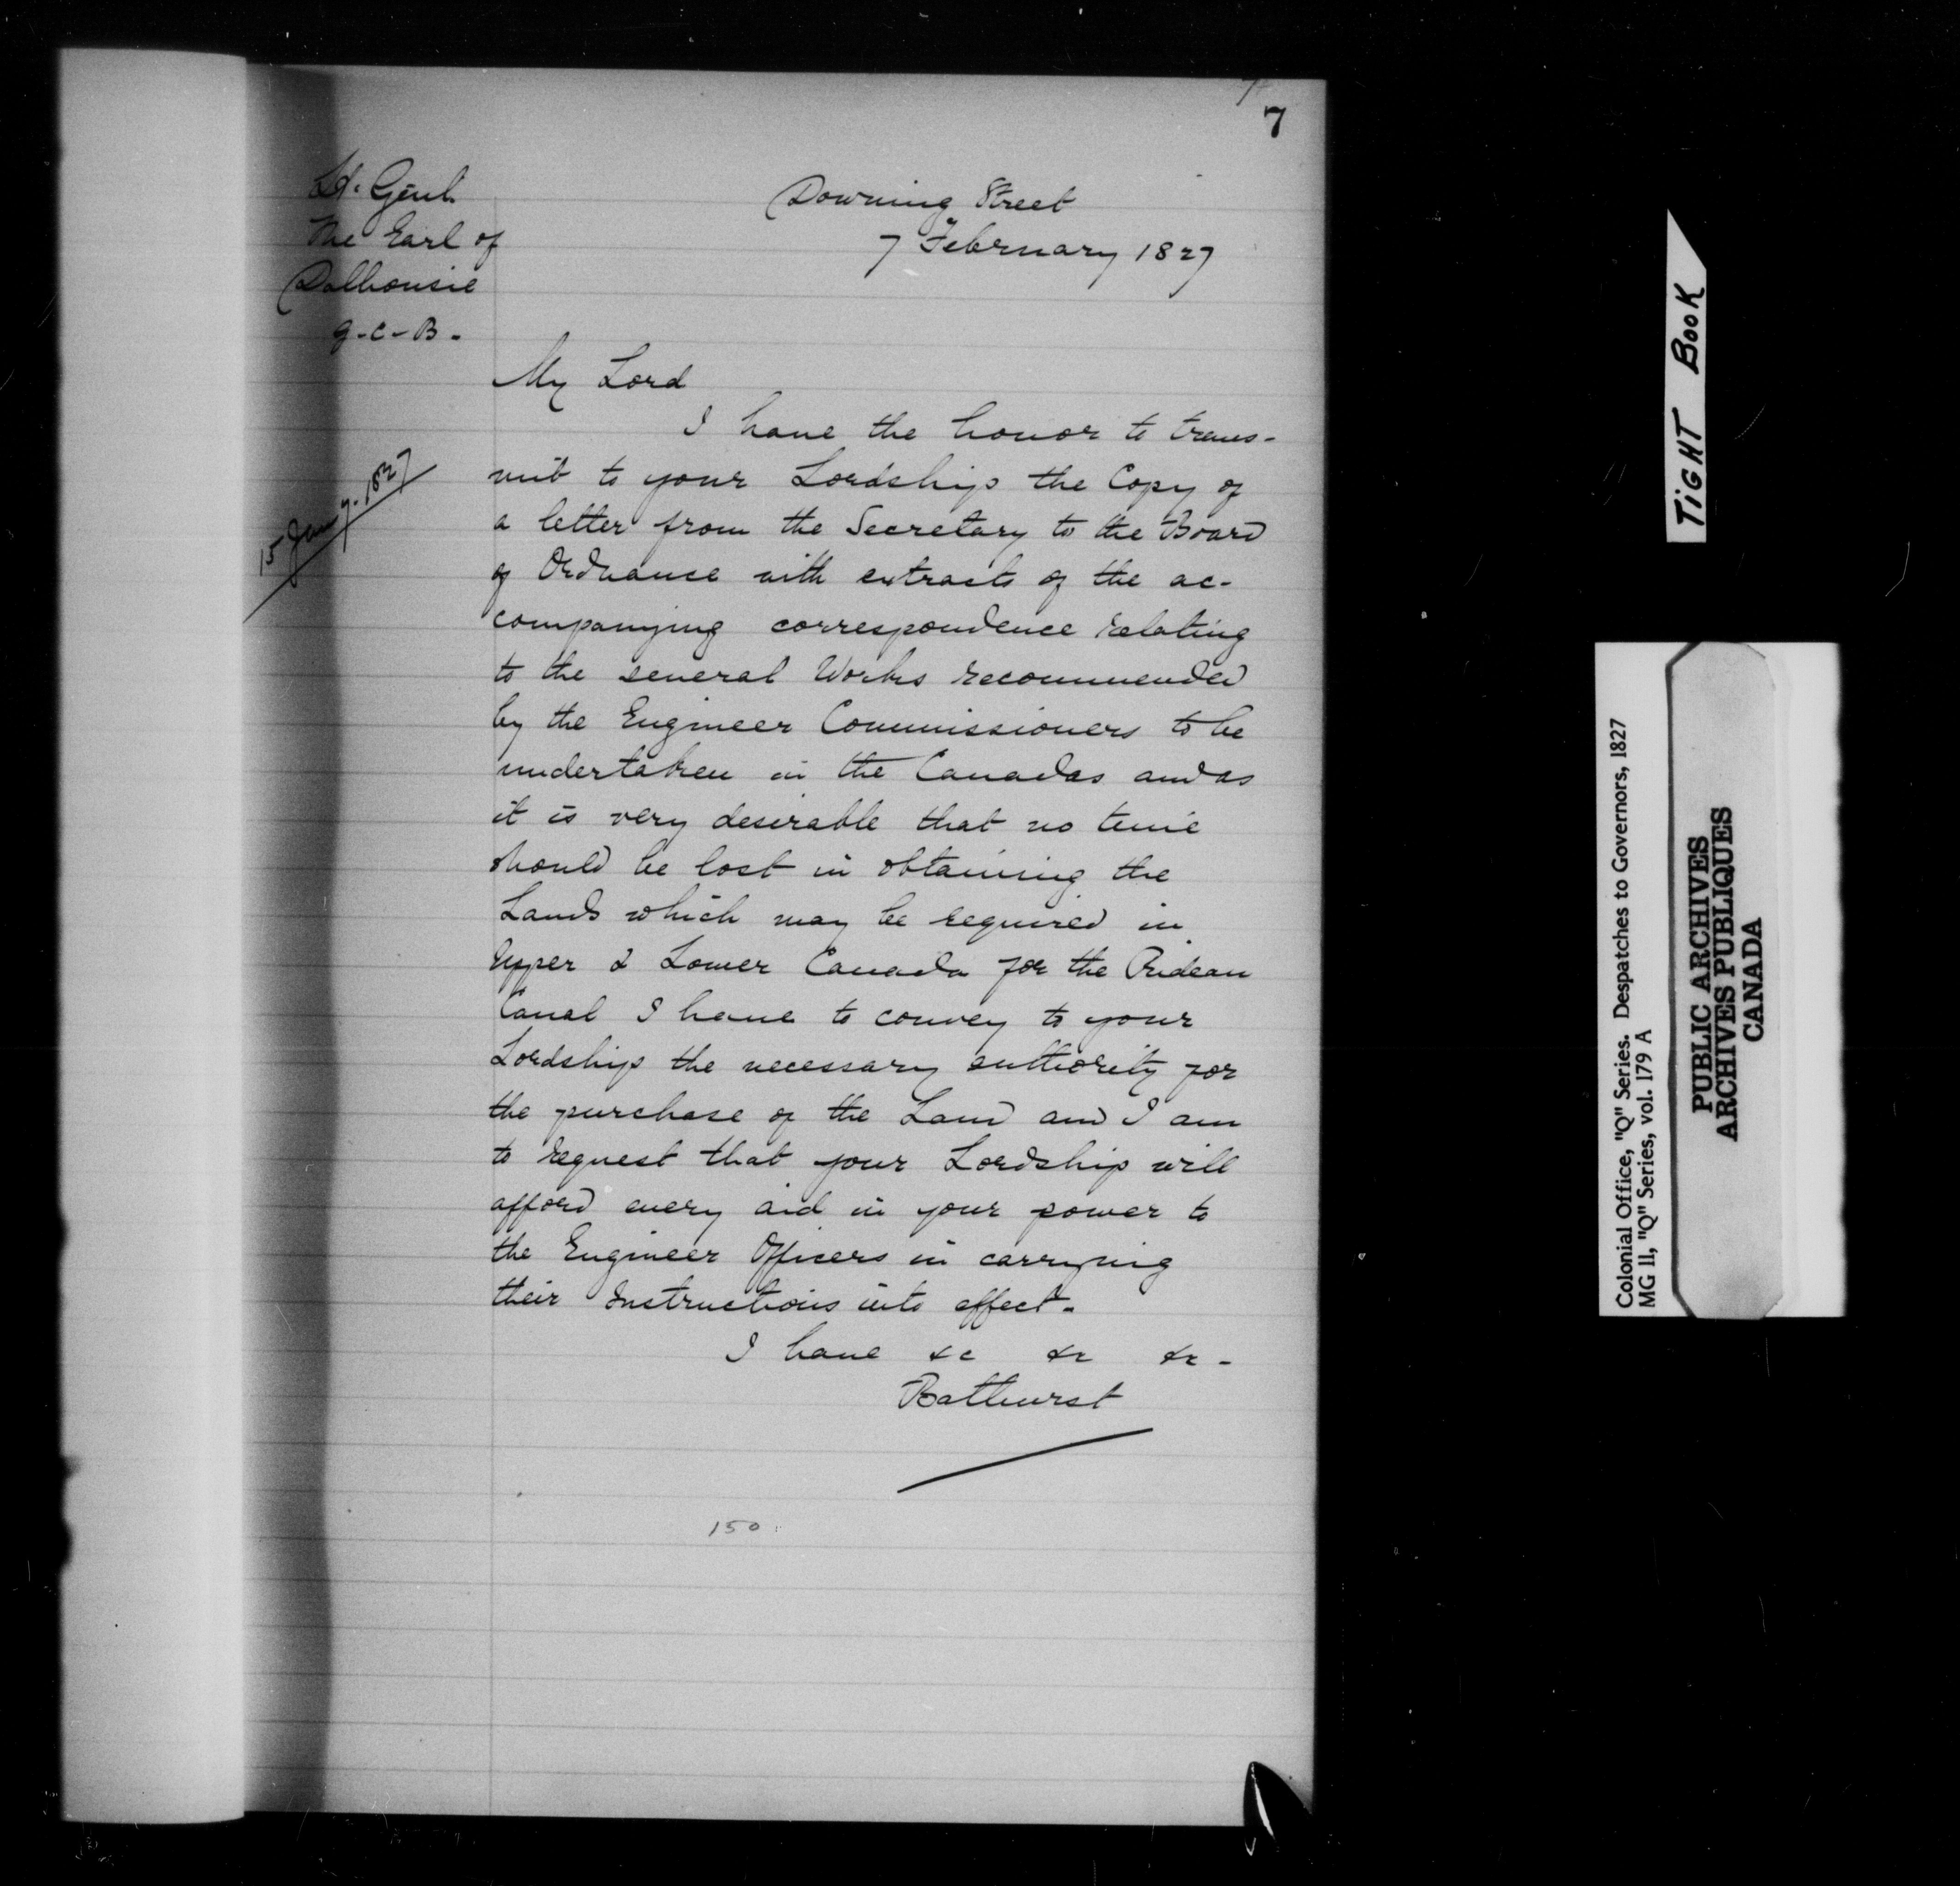 7
Lt. Genl.
The Earl of
Dalhousie
G-C-B-
Downing Street
7 February 1827
My Lord
15 Jany. 1827
I have the honor to trans-
mit to your Lordship the Copy of
a letter from the Secretary to the Board
of Ordnance with extracts of the ac-
companying correspondence relating
to the several Works recommended
by the Engineer Commissioners to be
undertaken in the Canadas and as
it is very desirable that no time
should be lost in obtaining the
Lands which may be required in
Upper & Lower Canada for the Rideau
Canal I have to convey to your
Lordship the necessary authority for
the purchase of the Land and I am
to request that your Lordship will
afford every aid in your power to
the Engineer Officers in carrying
their Instructions into effect-
I have &c &c &c-
Bathurst
150
TIGHT BOOK
Colonial Office, "Q" Series. Despatches to Governors, 1827
MG 11, "Q" Series, vol. 179 A
PUBLIC ARCHIVES
ARCHIVES PUBLIQUES
CANADA